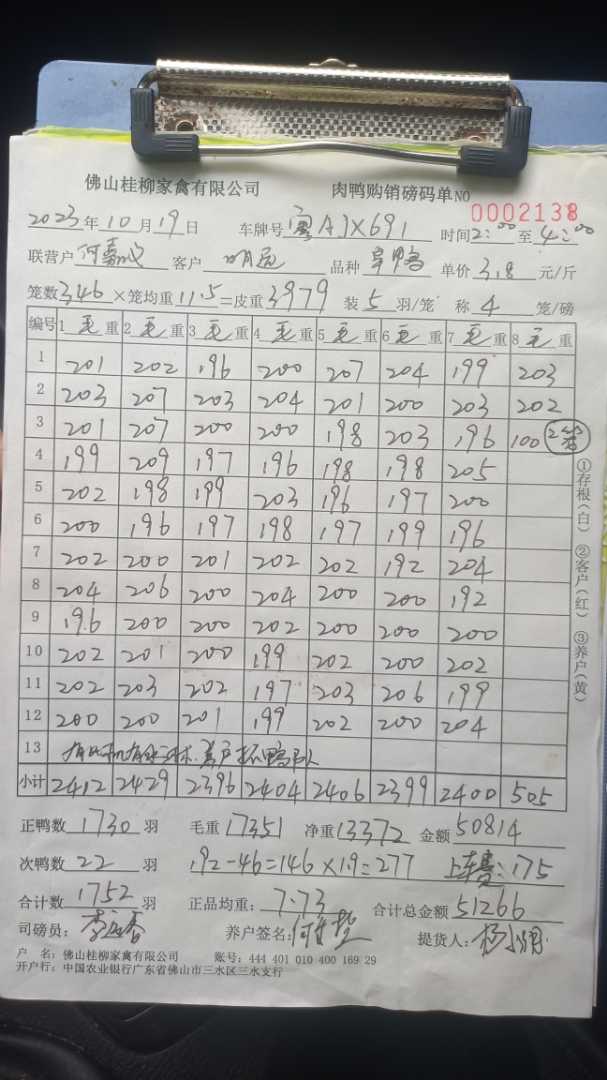 佛山桂柳家禽有限公司 肉鸭购销磅码单 NO 0002138
2023年10月19日 车牌号 粤AJX691 时间2:00至4:00
联营户 何嘉 客户 明远 品种 旱鸭 单价 3.8 元/斤
笼数346×笼均重11.5=皮重3979 装5羽/笼 称4笼/磅
编号 1毛重 2毛重 3毛重 4毛重 5毛重 6毛重 7毛重 8毛重
1 201 202 196 200 207 204 199 203
2 203 207 203 204 201 200 203 202
3 201 207 200 200 198 203 196 100 2笼
4 199 209 197 196 198 198 205
5 202 198 199 203 196 197 200
6 200 196 197 198 197 199 196
7 202 200 201 202 202 192 204
8 204 206 200 204 200 200 192
9 196 200 200 202 200 200 200
10 202 201 200 199 202 200 202
11 202 203 202 197 203 206 199
12 200 200 201 199 202 200 204
13
小计 2412 2429 2396 2404 2406 2399 2400 505
正鸭数 1730 羽 毛重 17351 净重 13372 金额 50814
次鸭数 22 羽 192-46=146×1.9=277 上车费:175
合计数 1752 羽 正品均重: 7.73 合计总金额 51266
司磅员: 养户签名: 提货人:
户 名: 佛山桂柳家禽有限公司 账号: 444 401 010 400 169 29
开户行: 中国农业银行广东省佛山市三水区三水支行
①存根(白) ②客户(红) ③养户(黄)